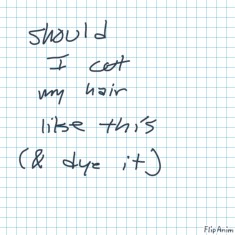 should
I cut
my hair
like this
(& dye it)
FlipAnim